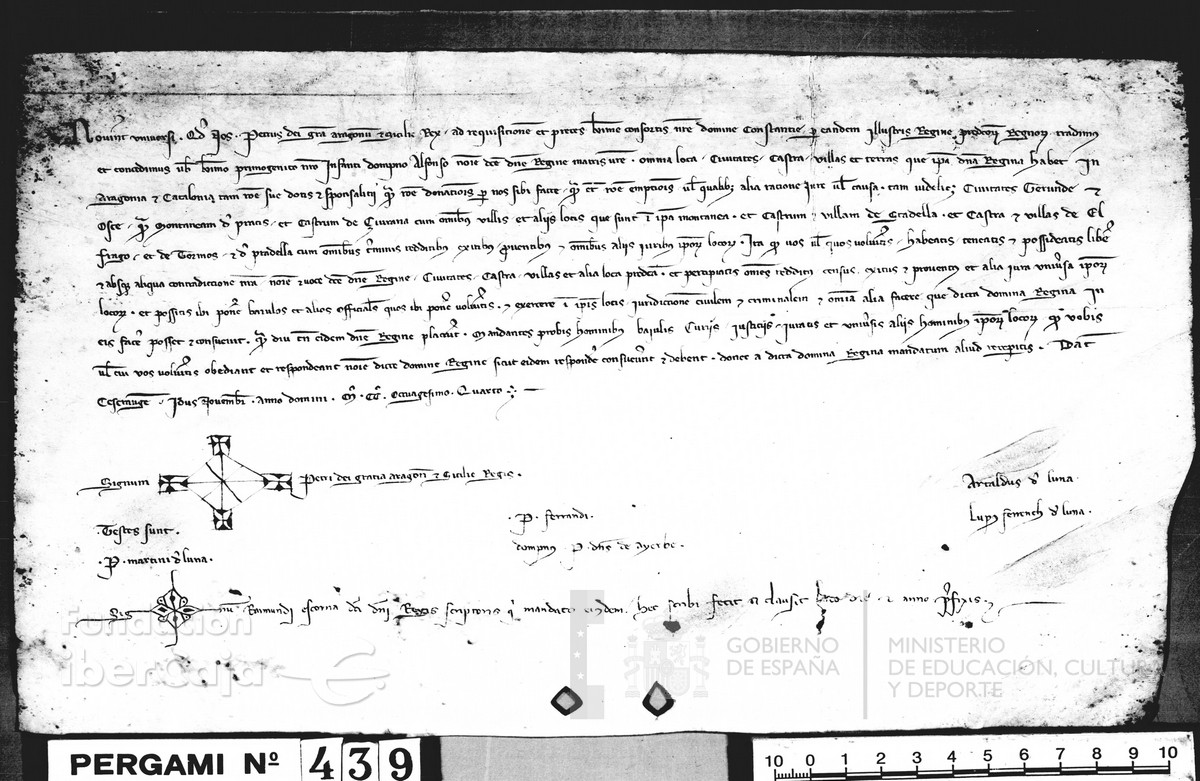 Novint universi. Qd Nos. Petrus dei gra aragonu & Sicilie Rex. ad requisitione et preces karissime consortis nre domine Constantie, p eandem Illustris Regine predcor Regnor. tradimus
et concedimus vob karissimo primogenito nro Infanti dompno Alfonso noie dce dne Regine matris vre. omnia loca, Civitates, Castra, villas et terras que ipa dna Regina habet In
Aragonia & Catalonia tam roe sue dotis & sponsalitij qm roe donationis p nos sibi facte, qm et roe emptionis ul alia ratione Iure ul causa. tam videlic3 Civitates Gerunde &
Osce, qm Montaneam d pratis, et Castrum de Ciurana cum omib3 villis et alijs locis que sunt i ipa montanea. et Castrum & villam de Gradella. et Castra & villas de El
frago, et de Tormos, & d pradella cum omnibus tminis redditib3 exitib3 pventib3 & omib3 aliis iurib3 ipor locor. Ita qd vos ul quos volueritis, habeatis teneatis & possideatis libe
& absq3 aliqua contradictione nra, noie & voce dce dne Regine, Civitates, Castra, villas et alia loca predca. et percipiatis omes redditus census, exitus & proventus et alia jura universa ipor
locor. et possitis ibi pone baiulos et alios officiales quos ibi pone volueritis. & exercere i ipis locis iurdictione civilem & criminalem & omia alia facere que dicta domina Regina In
eis face posset & consuevit. qm diu tn eidem dne Regine placuit. Mandantes probis hominib3 baiulis Curijs iusticijs iuratis et univsis alijs hominib3 ipor locor qd vobis
ul cui vos volueritis obediant et respondeant noie dicte domine Regine sicut eidem responde consuevint & debent. donec a dicta domina Regina mandatum aliud receperitis. Dat
Cesarauge, Idus Novembr. anno domini. M. CC. Octuagesimo. Quarto
Signum Petri dei gratia aragon & Sicilie Regis.
Testes sunt.
P. martini d luna.
P. ferrandi.
dompnus P. dns de ayerbe.
Artaldus d luna
Lup ferrench d luna.
Sig num Raimundi escorna dci dni Regis scriptoris q mandato eiusdem hec scribi fecit et clausit loco die et anno pfixis
Fundación
iberCaja
GOBIERNO
DE ESPAÑA
MINISTERIO
DE EDUCACIÓN, CULTURA
Y DEPORTE
PERGAMI Nº 439
10 0 1 2 3 4 5 6 7 8 9 10